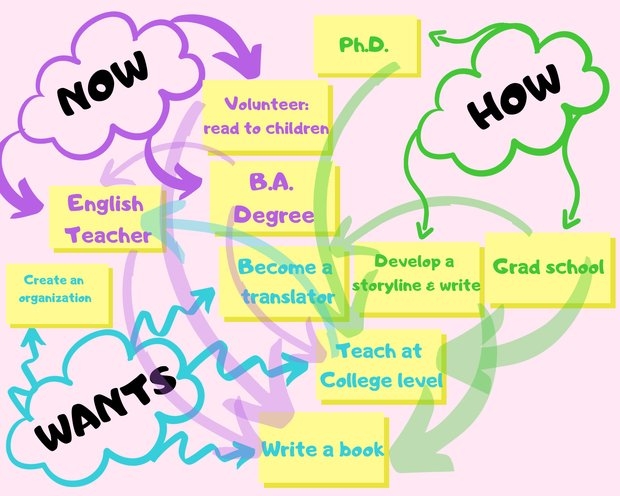 NOW
Ph.D.
HOW
Volunteer:
read to children
B.A.
Degree
English
Teacher
Become a
translator
Develop a
storyline & write
Grad school
Create an
organization
Teach at
College level
WANTS
Write a book